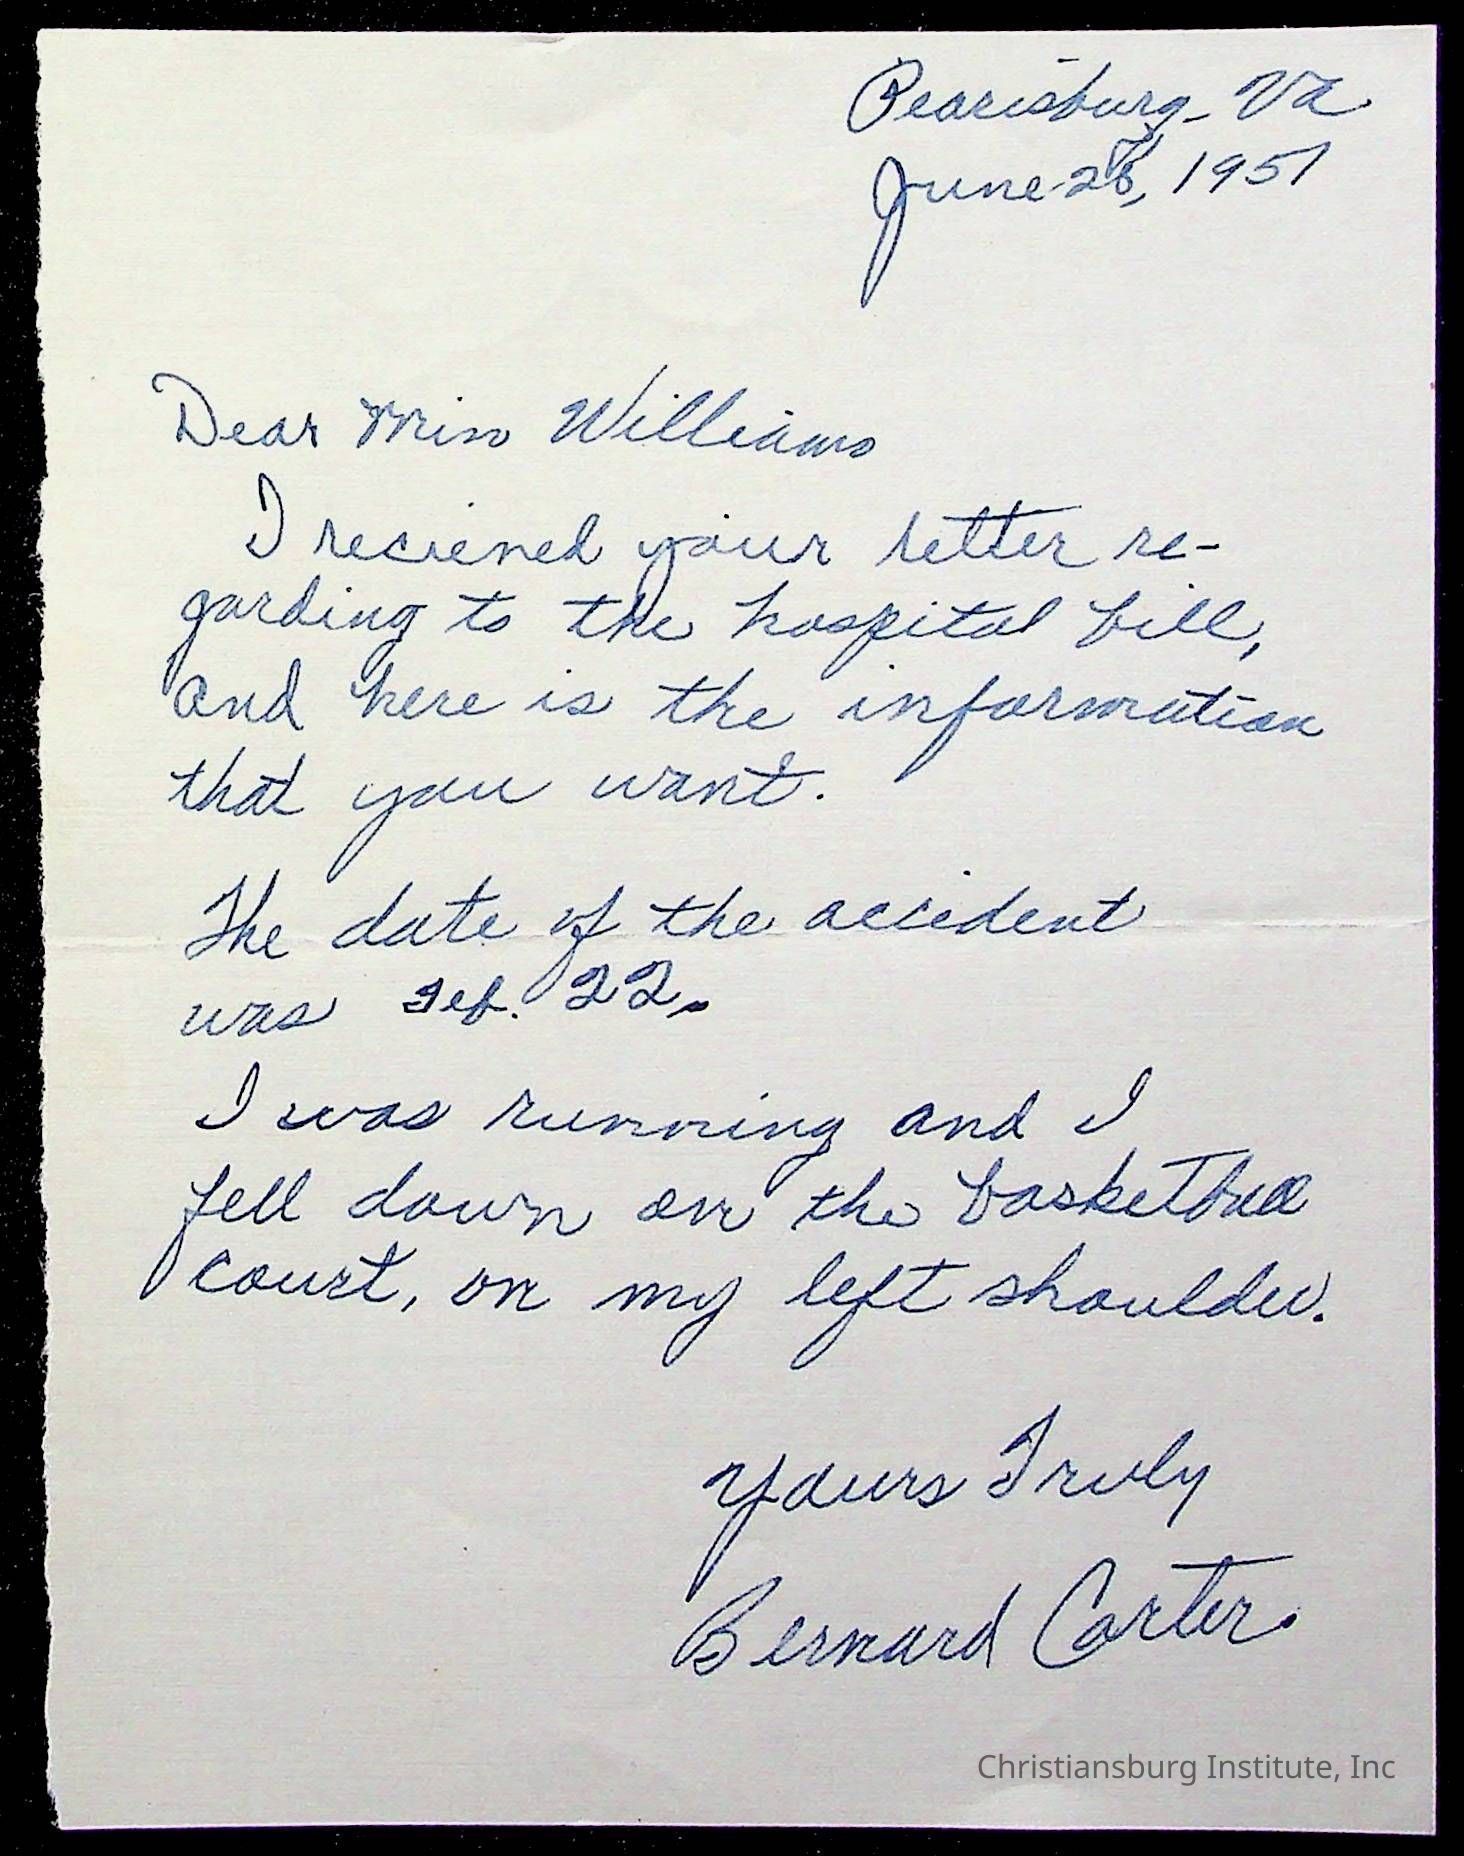 Pearisburg, Va.
June 26, 1951
Dear Miss Williams
I recieved your letter re-
garding to the hospital bill,
and here is the information
that you want.
The date of the accident
was Feb. 22.
I was running and I
fell down on the basketball
court, on my left shoulder.
Yours Truly
Bernard Carter.
Christiansburg Institute, Inc